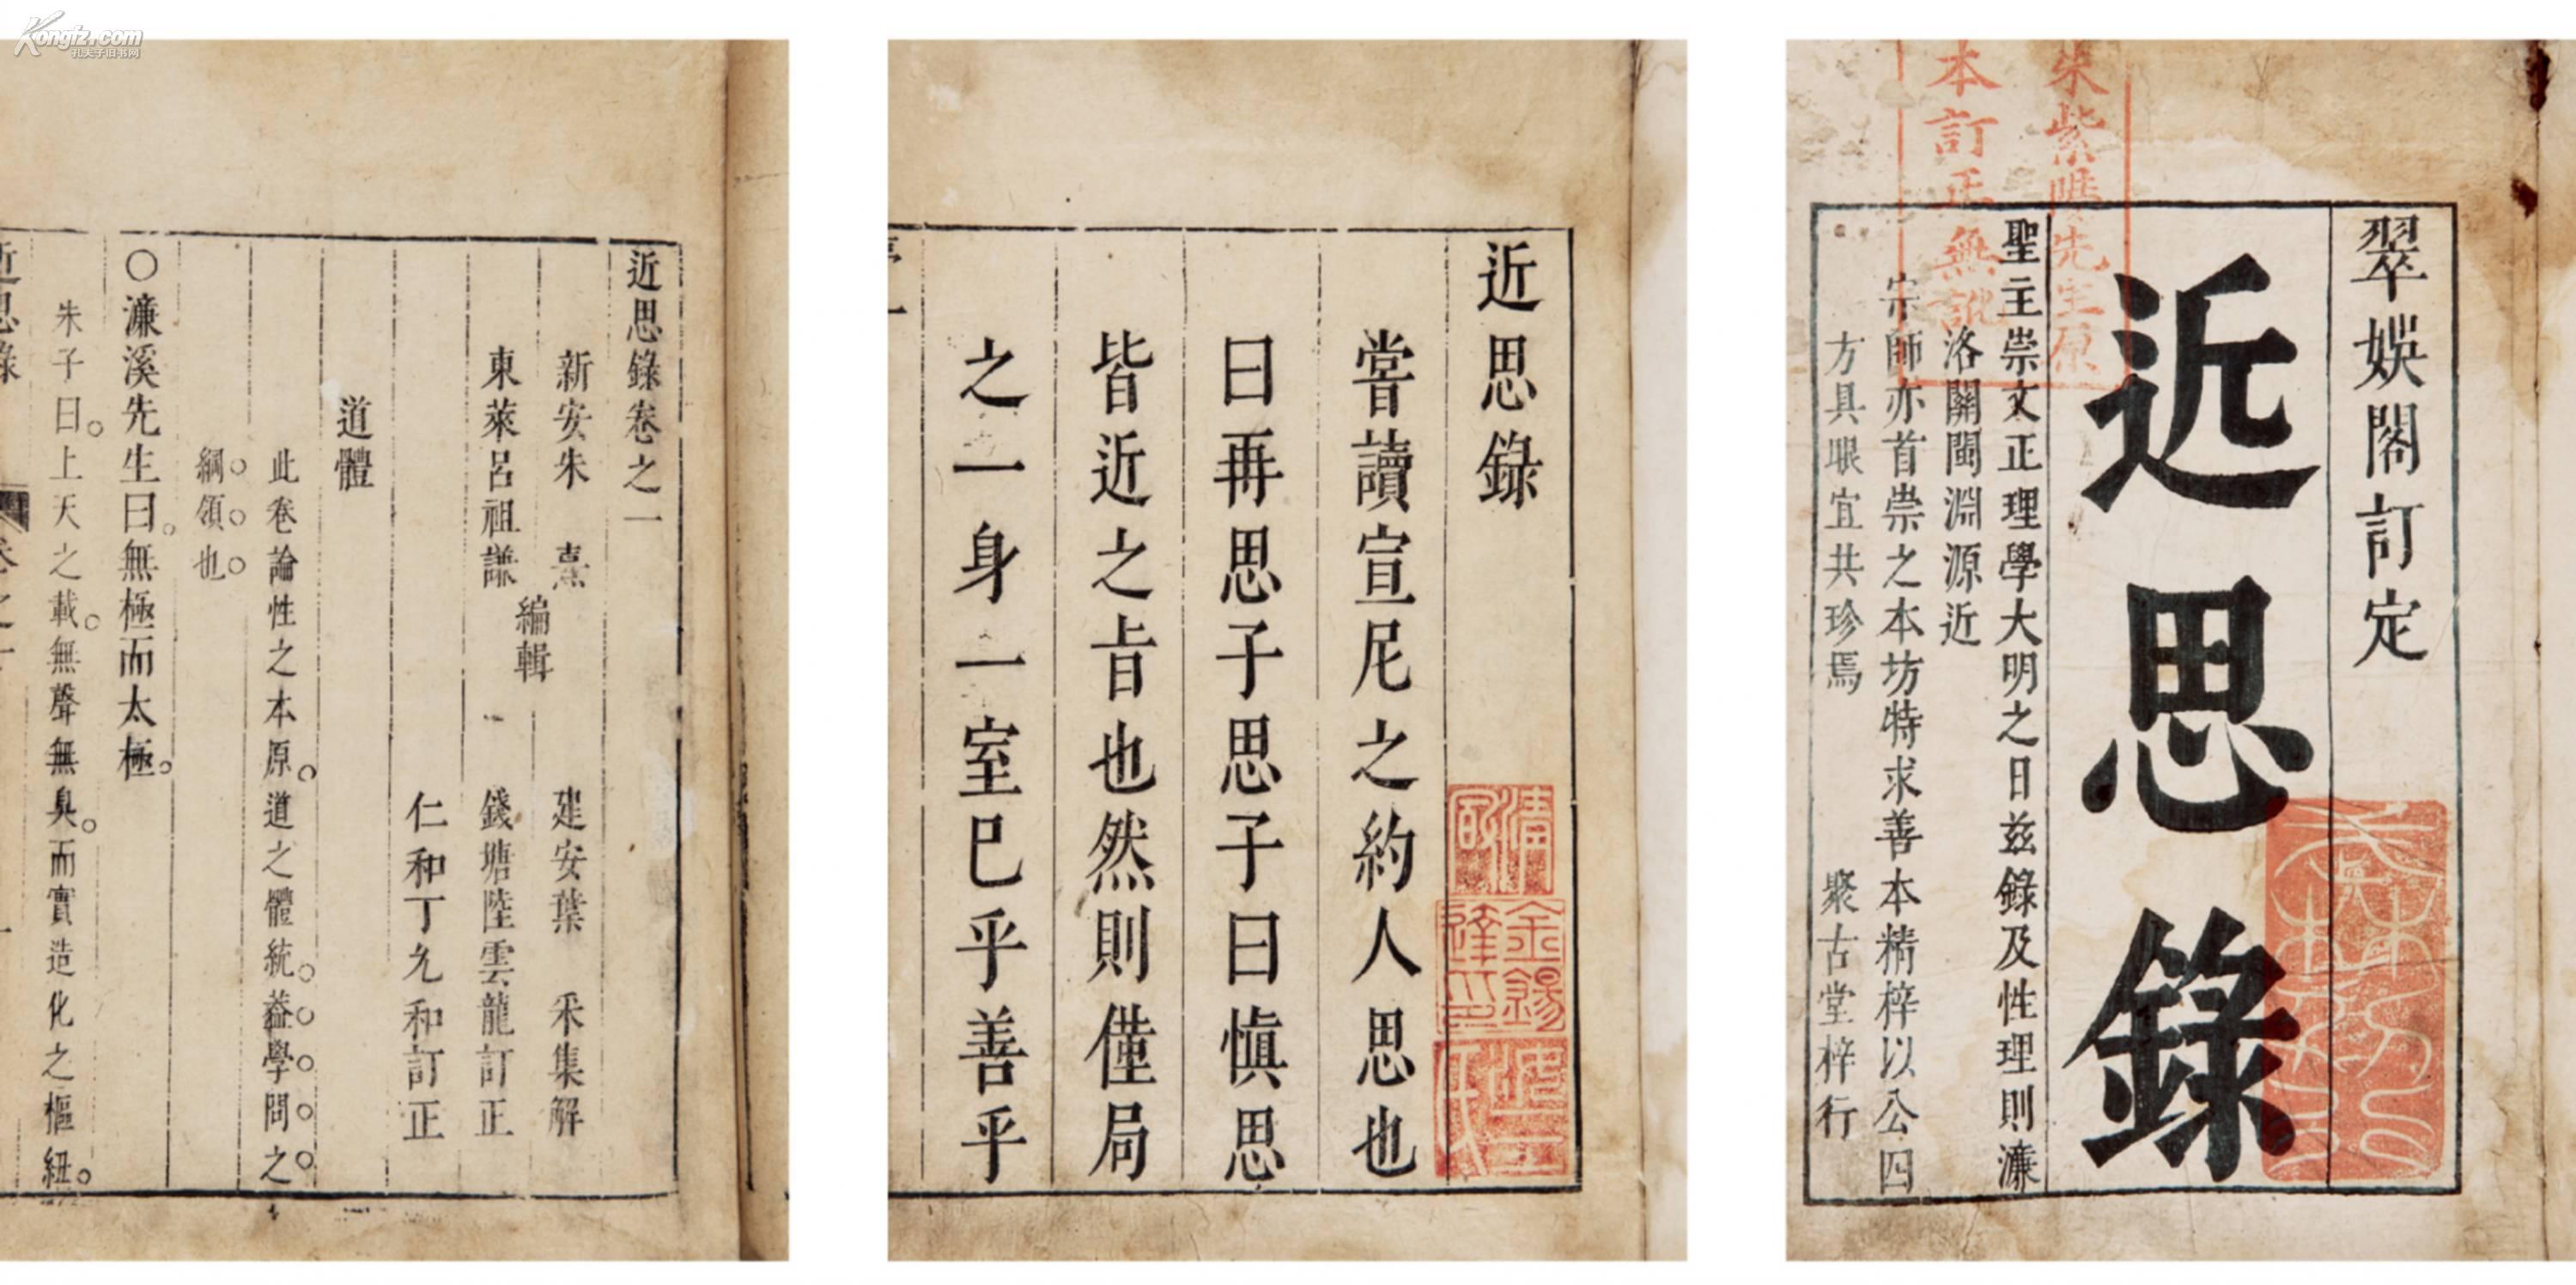 Kongfz.com
孔夫子旧书网
朱紫陽先生原
本訂正無訛
翠娛閣訂定
近思錄
聖主崇文正理學大明之日兹錄及性理則濂
洛關閩淵源近
宗師亦首崇之本坊特求善本精梓以公四
方具眼宜共珍焉
聚古堂梓行
近思錄
嘗讀宣尼之約人思也
曰再思子思子曰慎思
皆近之㫖也然則僅局
之一身一室已乎善乎
金錫
近思錄卷之一
新安朱熹
東萊呂祖謙
編輯
建安葉采集解
錢塘陸雲龍訂正
仁和丁允和訂正
道體
此卷論性之本原。道之體統。葢學問之
綱領也
○濂溪先生曰。無極而太極。
朱子曰。上天之載。無聲無臭。而實造化之樞紐。
近思錄
卷之一
一